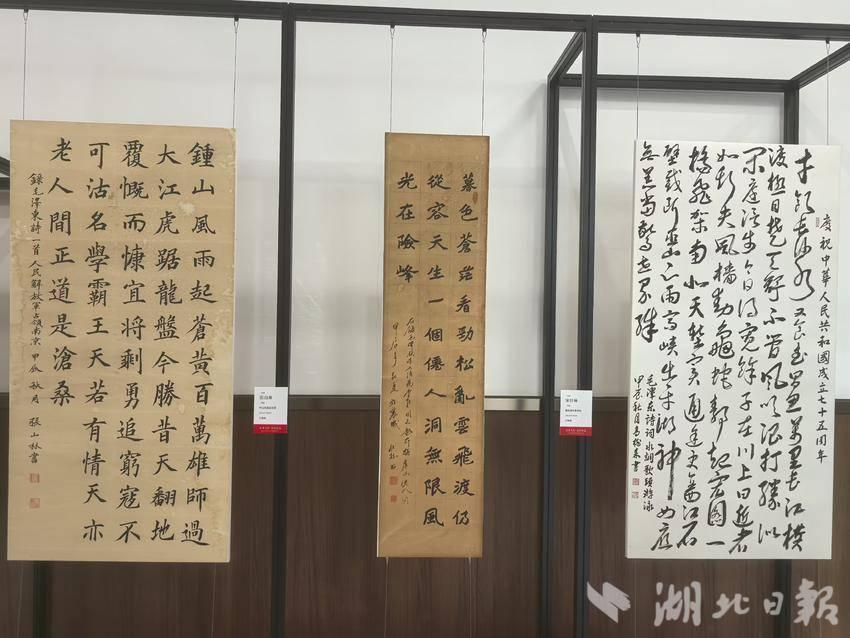 鍾山風雨起蒼黃百萬雄師過
大江虎踞龍盤今勝昔天翻地
覆慨而慷宜將剩勇追窮寇不
可沽名學霸王天若有情天亦
老人間正道是滄桑
錄毛澤東詩一首人民解放軍占領南京 甲辰秋月 張山林書
暮色蒼茫看勁松亂雲飛渡仍
從容天生一個僊人洞無限風
光在險峰
慶祝中華人民共和國成立七十五周年
才飲長沙水又食武昌魚萬里長江橫
渡極目楚天舒不管風吹浪打勝似
閑庭信步今日得寬餘子在川上曰逝者
如斯夫風檣動龜蛇靜起宏圖一
橋飛架南北天塹變通途更立西江石
壁截斷巫山雲雨高峽出平湖神女應
無恙當驚世界殊
毛澤東詩詞水調歌頭游泳
甲辰秋月
湖北日報